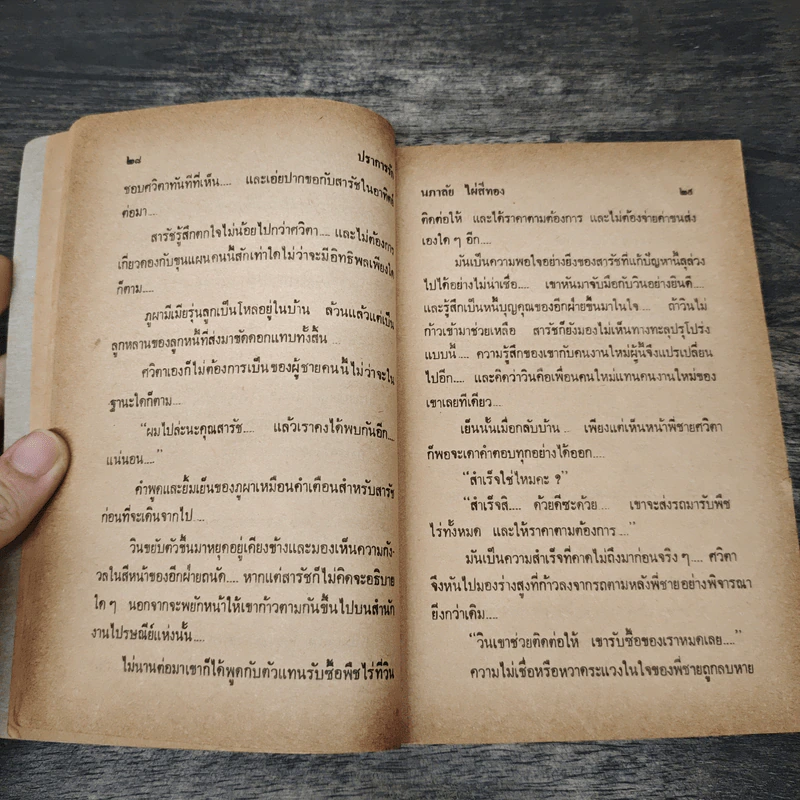 ๒๘
ปราการรัก
ชอบศวิตาทันทีที่เห็น.... และเอ่ยปากขอกับสารัชในอาทิตย์
ต่อมา....
สารัชรู้สึกตกใจไม่น้อยไปกว่าศวิตา.... และไม่ต้องการ
เกี่ยวดองกับขุนแผนคนนี้สักเท่าใดไม่ว่าจะมีอิทธิพลเพียงใด
ก็ตาม....
ภูผามีเมียรุ่นลูกเป็นโหลอยู่ในบ้าน ล้วนแล้วแต่เป็น
ลูกหลานของลูกหนี้ที่ส่งมาขัดดอกแทบทั้งสิ้น ....
ศวิตาเองก็ไม่ต้องการเป็นของผู้ชายคนนี้ไม่ว่าจะใน
ฐานะใดก็ตาม....
“ผมไปล่ะนะคุณสารัช.... แล้วเราคงได้พบกันอีก....
แน่นอน....”
คำพูดและยิ้มเย็นของภูผาเหมือนคำเตือนสำหรับสารัช
ก่อนที่จะเดินจากไป....
วินขยับตัวขึ้นมาหยุดอยู่เคียงข้างและมองเห็นความกัง-
วลในสีหน้าของอีกฝ่ายถนัด.... หากแต่สารัชก็ไม่คิดจะอธิบาย
ใด ๆ นอกจากจะพยักหน้าให้เขาก้าวตามกันขึ้นไปบนสำนัก
งานไปรษณีย์แห่งนั้น....
ไม่นานต่อมาเขาก็ได้พูดกับตัวแทนรับซื้อพืชไร่ที่วิน
นภาลัย ไผ่สีทอง
๒๙
ติดต่อให้ และได้ราคาตามต้องการ และไม่ต้องจ่ายค่าขนส่ง
เองใด ๆ อีก....
มันเป็นความพอใจอย่างยิ่งของสารัชที่แก้ปัญหานี้ลุล่วง
ไปได้อย่างไม่น่าเชื่อ.... เขาหันมาจับมือกับวินอย่างยินดี....
และรู้สึกเป็นหนี้บุญคุณของอีกฝ่ายขึ้นมาในใจ.... ถ้าวินไม่
ก้าวเข้ามาช่วยเหลือ สารัชก็ยังมองไม่เห็นทางทะลุปรุโปร่ง
แบบนี้.... ความรู้สึกของเขากับคนงานใหม่ผู้นี้จึงแปรเปลี่ยน
ไปอีก.... และคิดว่าวินคือเพื่อนคนใหม่แทนคนงานใหม่ของ
เขาเลยทีเดียว....
เย็นนั้นเมื่อกลับบ้าน.... เพียงแต่เห็นหน้าพี่ชายศวิตา
ก็พอจะเดาคำตอบทุกอย่างได้ออก....
“สำเร็จใช่ไหมคะ ?”
“สำเร็จสิ.... ด้วยดีซะด้วย.... เขาจะส่งรถมารับพืช
ไร่ทั้งหมด และให้ราคาตามต้องการ....”
มันเป็นความสำเร็จที่คาดไม่ถึงมาก่อนจริง ๆ .... ศวิตา
จึงหันไปมองร่างสูงที่ก้าวลงจากรถตามหลังพี่ชายอย่างพิจารณา
ยิ่งกว่าเดิม....
“วินเขาช่วยติดต่อให้ เขารับซื้อของเราหมดเลย....”
ความไม่เชื่อหรือหวาดระแวงในใจของพี่ชายถูกลบหาย